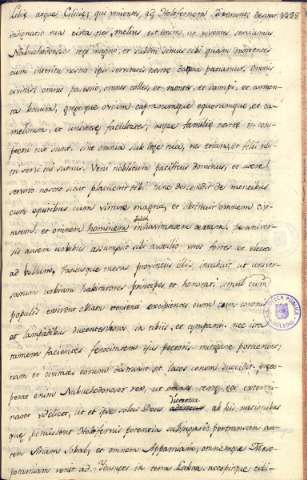 Libiæ atque Ciliciæ, qui venientes ad Holofernem dixerunt: desinat 1238
indignatio tua circa nos, melius est enim, ut viventes serviamus
Nabuchodonosor regi magno, et subditi simus tibi quam morientes
cum interitu nostro ipsi servitutis nostræ damna patiamur. Omnis
civitas omnisque possessio, omnes colles, et montes, et campi, et armenta
boum, gregesque ovium caprarumque equorumque, et camelorum,
et universæ facultates, atque familiæ nostræ in conspectu
tuo sunt. Sint omnia sub lege tua, nos etiam, et filii nostri
servi tui sumus. Veni nobis pacificus dominus, et utere
servitio nostro sicut placuerit tibi. Tunc descendit de montibus
cum equitibus cum virtute magna, et obtinuit omnem civitatem,
et omnem inhabitantem terram. De universis
autem urbibus assumpsit sibi auxilio viros fortes et electos
ad bellum, tantusque metus provinciis illis incubuit ut universarum
urbium habitatores principes et honorati simul cum
populis exirent obviam venienti excipientes eum cum coronis
et lampadibus ducentes choros in tibiis, et tympanis. nec ista
tamen facientes ferocitatem ejus pectoris mitigare potuerunt,
nam et civitates eorum destruxit et lucos eorum excidit. præceperat
enim Nabuchodonosor rex, ut omnes deos terræ exterminaret
videlicet, ut ipse solus Deus diceretur ab his nationibus
quæ potuissent Holofernis potentia subjugari. pertransiens autem
Syriam Sobal, et omnem Apameam, omnemque Mesopotamiam
venit ad Idumæos in terra Gabaa, accepitque civi-